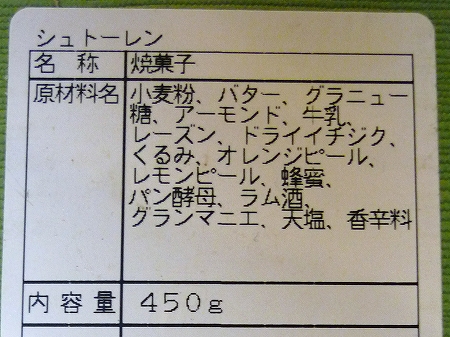 シュトーレン
名 称 焼菓子
原材料名 小麦粉、バター、グラニュー
糖、アーモンド、牛乳、
レーズン、ドライイチジク、
くるみ、オレンジピール、
レモンピール、蜂蜜、
パン酵母、ラム酒、
グランマニエ、天塩、香辛料
内容量 450g